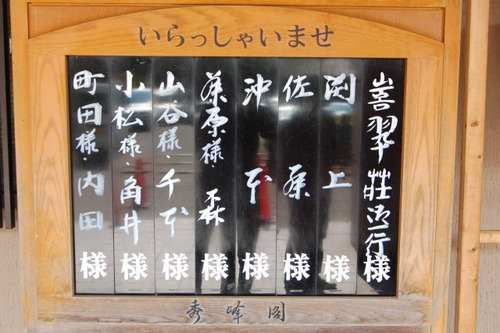 いらっしゃいませ
嵩翠荘御一行様
渕上様
佐藤様
沖本様
藤原様・森様
山谷様・千本様
小松様・角井様
町田様・内田様
秀峰閣